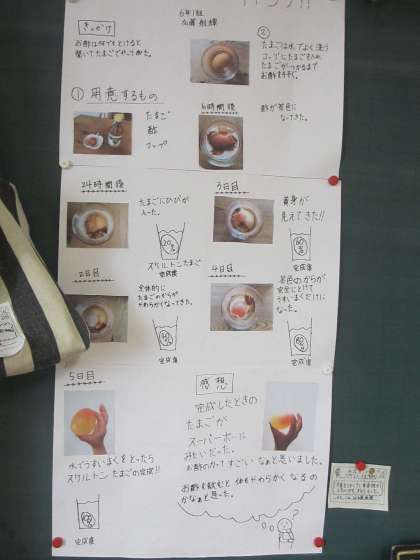 6年1組
きっかけ
お酢は何でもとけると
聞いてたまごでやってみた。
①用意するもの
たまご
酢
コップ
②
たまごは水でよく洗う
コップにたまごを入れ
たまごがつかるまで
お酢をそそぐ。
6時間後
酢が茶色に
なってきた。
24時間後
たまごにひびが
入った。
20%
スケルトンたまご
完成度
2日目
全体的に
たまごのからが
やわらかくなってきた。
完成度
3日目
黄身が
見えてきた!!
60%
完成度
4日目
茶色のからが
完全にとけて
うすいまくだけに
なった。
完成度
5日目
水でうすいまくをとったら
スケルトンたまごの完成!!
完成度
感想
完成したときの
たまごが
スーパーボール
みたいだった。
お酢の力ってすごいなぁと思いました。
お酢を飲むと体もやわらかくなるの
かなぁと思った。